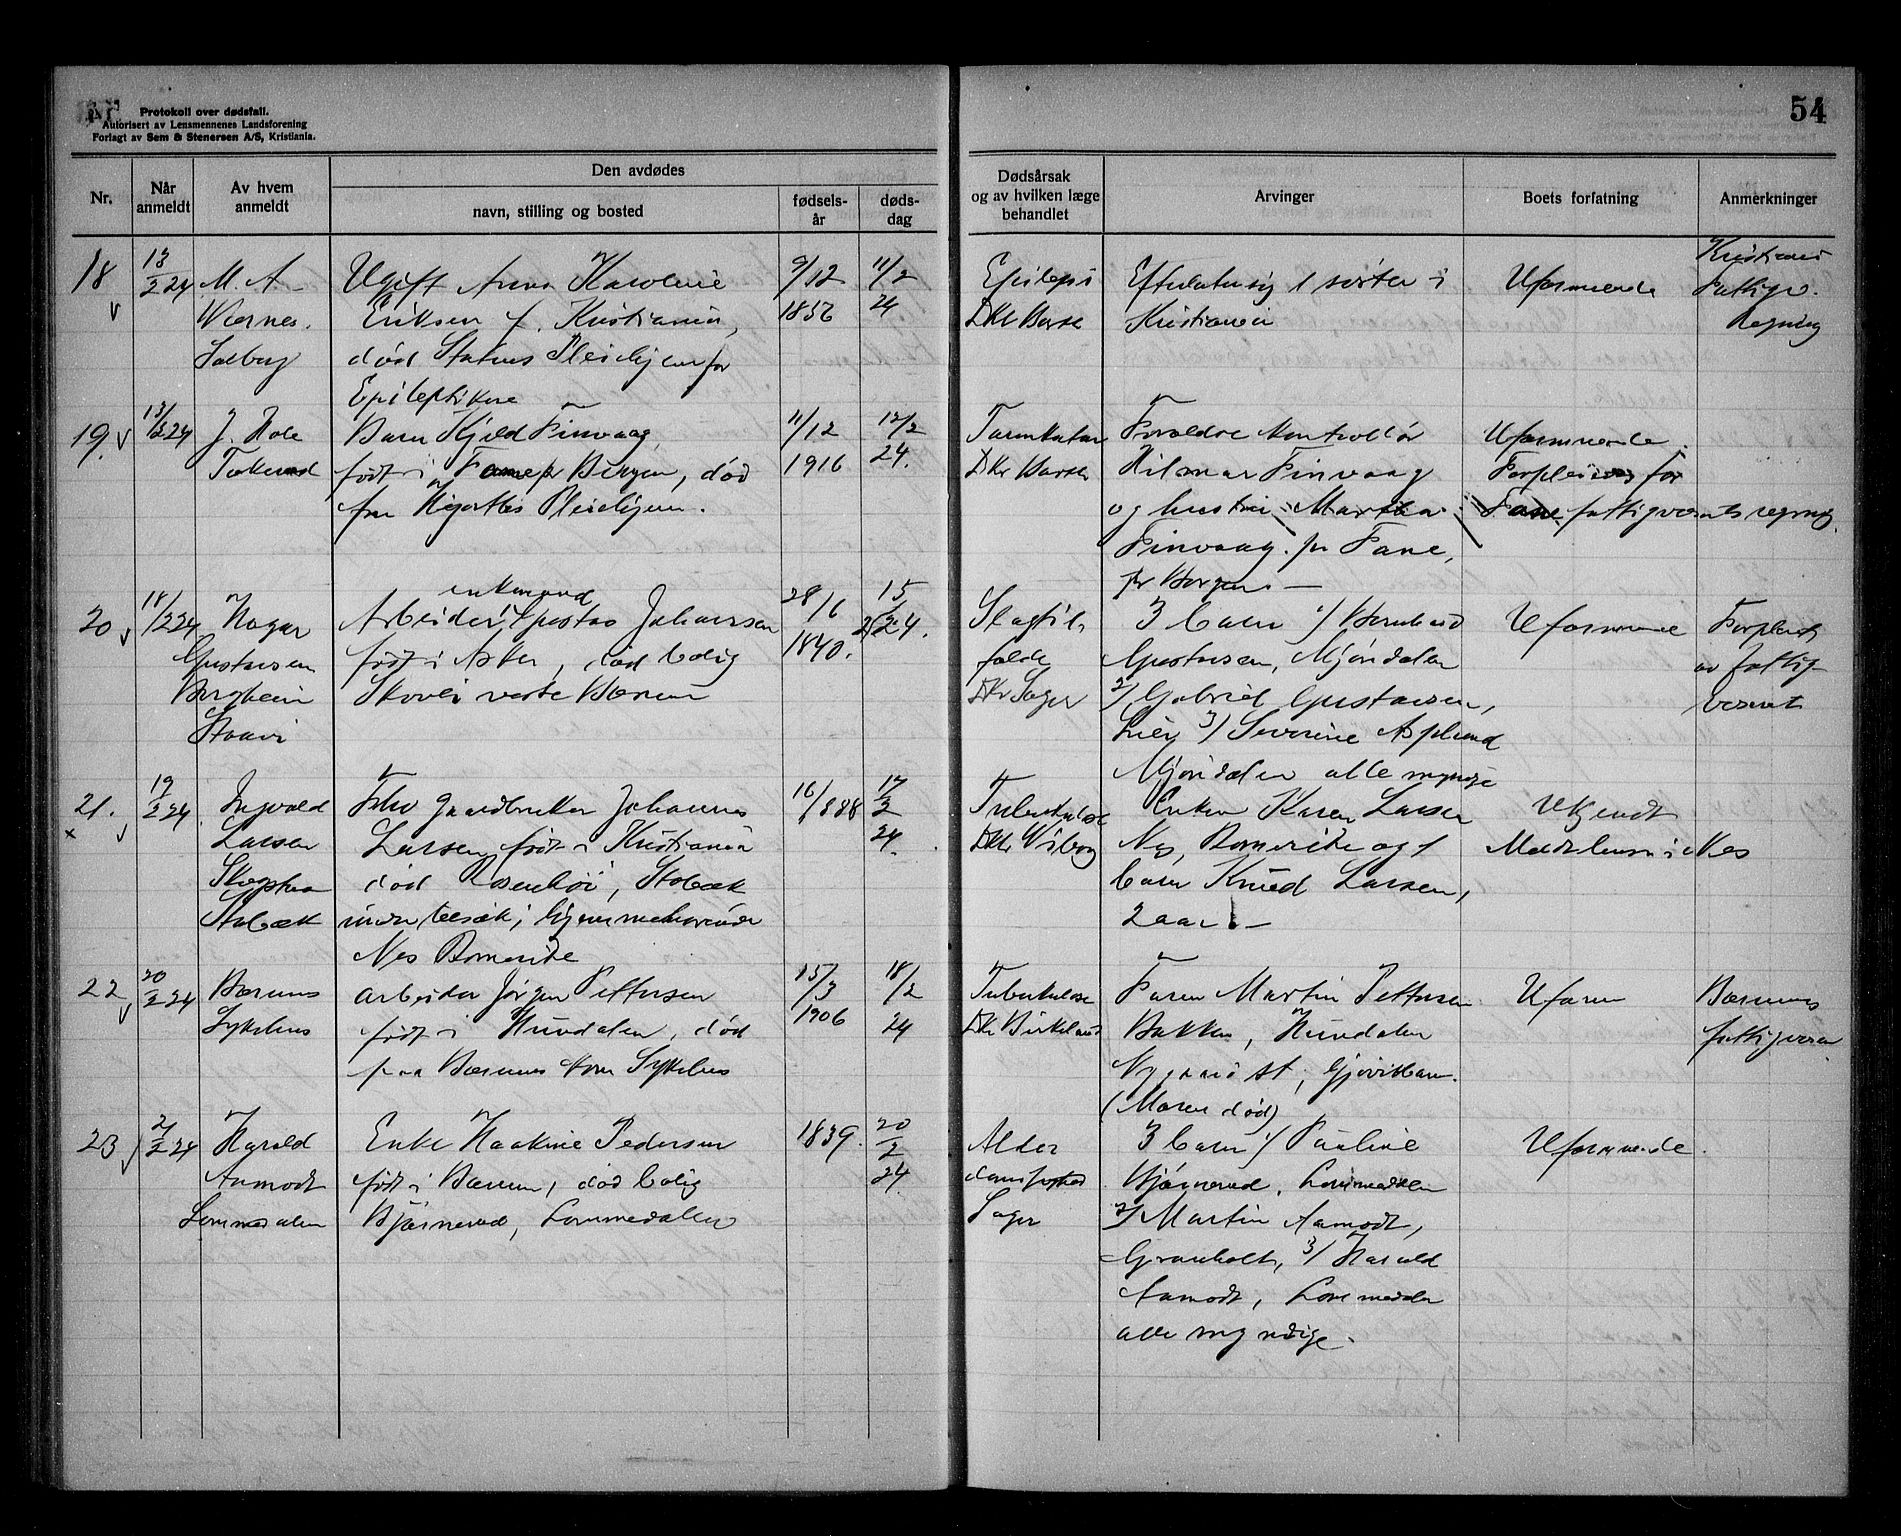 54
Protokoll over dødsfall.
Autorisert av Lensmennenes Landsforening
Forlagt av Sem & Stenersen A/S, Kristiania.
Nr.
Når anmeldt
Av hvem anmeldt
Den avdødes
navn, stilling og bosted
fødsels-år
døds-dag
Dødsårsak og av hvilken læge behandlet
Arvinger
Boets forfatning
Anmerkninger
18
13/2 24
M. A.
Wærnes.
Solberg
Ugift Anna Karoline
Eriksen f. Kristiania,
død Statens Pleiehjem for
Epileptikere
9/12
11/2
24
Epilepsi
Efterlater sig 1 søster i
Kristiania
Uformuende
Kristiania
Fattigv.
Regning
19.
13/2 24
J. Hole
Barn Kjeld Finvaag,
født i Fane pr Bergen, død
fra Hjorttes Pleiehjem.
11/12
1916
12/2
24.
Tarmkatar
Forældre Kontrollør
Hilmar Finvaag
og hustru Martha
Finvaag. pr Fane,
pr Bergen. —
Uformuende.
Forpleiees for
Fane fattigvæsents regning.
20
18/2 24
Hagar
Gustavsen
Bergheim
Staavi
enkemand
Arbeider Gustav Johansen
født i Asker, død bolig
Skovli vestre Bærum
28/6
1840.
15/2 24.
Slagtil-
fælde
Dr Sager
3 barn 1/ Bernhard
Gustavsen, Mjøndalen
2/ Gabriel Gustavsen,
Lier 3/ Severine Asplund
Mjøndalen alle myndige
Uformuende
Forpleiet
av fattig
væsenet
21.
x
17/2 24
Ingvald
Larsen
Stabæk
Fhv gaardbruker Johannes
Larsen født i Kristiania
død Rosenhøi, Stabæk
under besøk; hjemmehørende
Nes Romerike
16/
1888
17/2
24.
Tuberkulose
Enken Karen Larsen
Nes, Romerike og 1
barn Knud Larsen,
2 aar. —
Ukjendt
Nes
22
20/2 24
Bærums
Sykehus
Arbeider Jørgen Pettersen
født i Hundalen, død
paa Bærums Sykehus
15/3
1906
18/2
24
Tuberkulose
Dr Birkeland
Faren Martin Pettersen
Bakken, Hundalen
Nygaard st, Gjøvikban.
(Moren død)
Uform
Bærums
fattigvesen
23
21/2 24
Harald
Aamodt
Lommedalen
Enke Haakine Pedersen
født i Bærum, død bolig
Bjørnerud, Lommedalen
1839.
20/2
24
Alder
Sager
3 barn 1/ Pauline
Bjørnerud, Lommedalen
2/ Martin Aamodt,
Granholt, 3/ Harald
Aamodt, Lommedalen
alle myndige.
Uformuende.